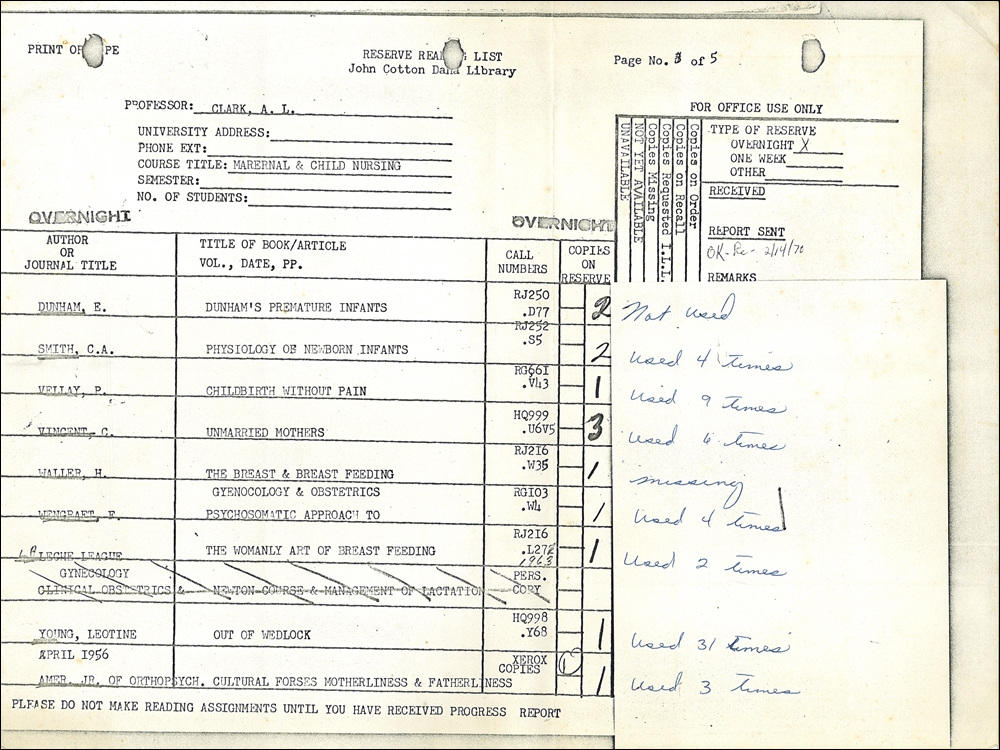 PRINT OR
RESERVE READING LIST
John Cotton Dana Library
Page No. 3 of 5
PROFESSOR: CLARK, A. L.
UNIVERSITY ADDRESS:
PHONE EXT:
COURSE TITLE: MARERNAL & CHILD NURSING
SEMESTER:
NO. OF STUDENTS:
FOR OFFICE USE ONLY
UNAVAILABLE
NOT YET AVAILABLE
Copies Missing
Copies Requested I.L.L.
Copies on Recall
Copies on Order
TYPE OF RESERVE
OVERNIGHT X
ONE WEEK
OTHER
RECEIVED
REPORT SENT
OK-Re- 2/14/70
REMARKS
OVERNIGHT OVERNIGHT
AUTHOR
OR
JOURNAL TITLE
TITLE OF BOOK/ARTICLE
VOL., DATE, PP.
CALL
NUMBERS
COPIES
ON
RESERVE
DUNHAM, E. DUNHAM'S PREMATURE INFANTS RJ250
.D77 2 Not used
SMITH, C.A. PHYSIOLOGY OF NEWBORN INFANTS RJ252
.S5 2 Used 4 times
VELLAY, P. CHILDBIRTH WITHOUT PAIN RG661
.V43 1 Used 9 times
VINCENT, C. UNMARRIED MOTHERS HQ999
.U6V5 3 Used 6 times
WALLER, H. THE BREAST & BREAST FEEDING RJ216
.W35 1 missing
GYENOCOLOGY & OBSTETRICS RG103
WENGRAFT, F. PSYCHOSOMATIC APPROACH TO .W4 1 Used 4 times
LA LECHE LEAGUE THE WOMANLY ART OF BREAST FEEDING RJ216
.L272 1 Used 2 times
1963
GYNECOLOGY PERS.
CLINICAL OBSTETRICS & NEWTON COURSE & MANAGEMENT OF LACTATION COPY
YOUNG, LEOTINE OUT OF WEDLOCK HQ998
.Y68 1 Used 31 times
APRIL 1956 XEROX
COPIES 1
AMER. JR. OF ORTHOPSYCH. CULTURAL FORSES MOTHERLINESS & FATHERLINESS 1 Used 3 times
PLEASE DO NOT MAKE READING ASSIGNMENTS UNTIL YOU HAVE RECEIVED PROGRESS REPORT